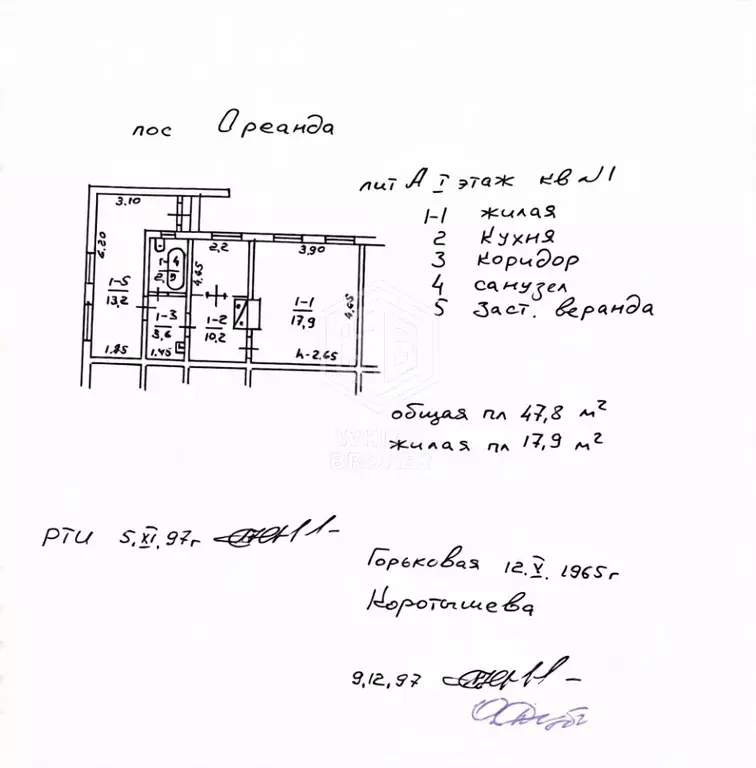 пос Ореанда
лит А I этаж кв №1
1-1 жилая
2 Кухня
3 коридор
4 санузел
5 Заст. веранда
3.10
6.20
2,2
3,90
4.65
4,65
1-5
13,2
4
1-3
3,6
1-2
10,2
1-1
17,9
1.85
1.45
h-2.65
общая пл 47,8 м²
жилая пл 17,9 м²
WHITE
BROKER
РТИ 5.XI.97г
Горьковая 12.V.1965г
Коротышева
9,12,97